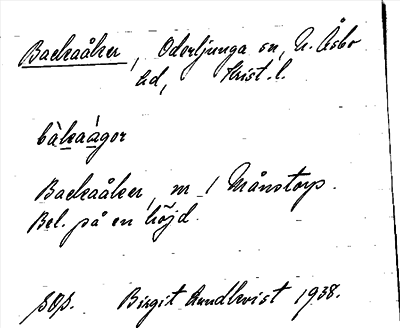 Backaåker, Oderljunga sn, N. Åsbo
hd, Krist. l.
bàkaágor
Backaåker, m / Månstorp.
Bel. på en höjd.
Birgit Lundkvist 1938.